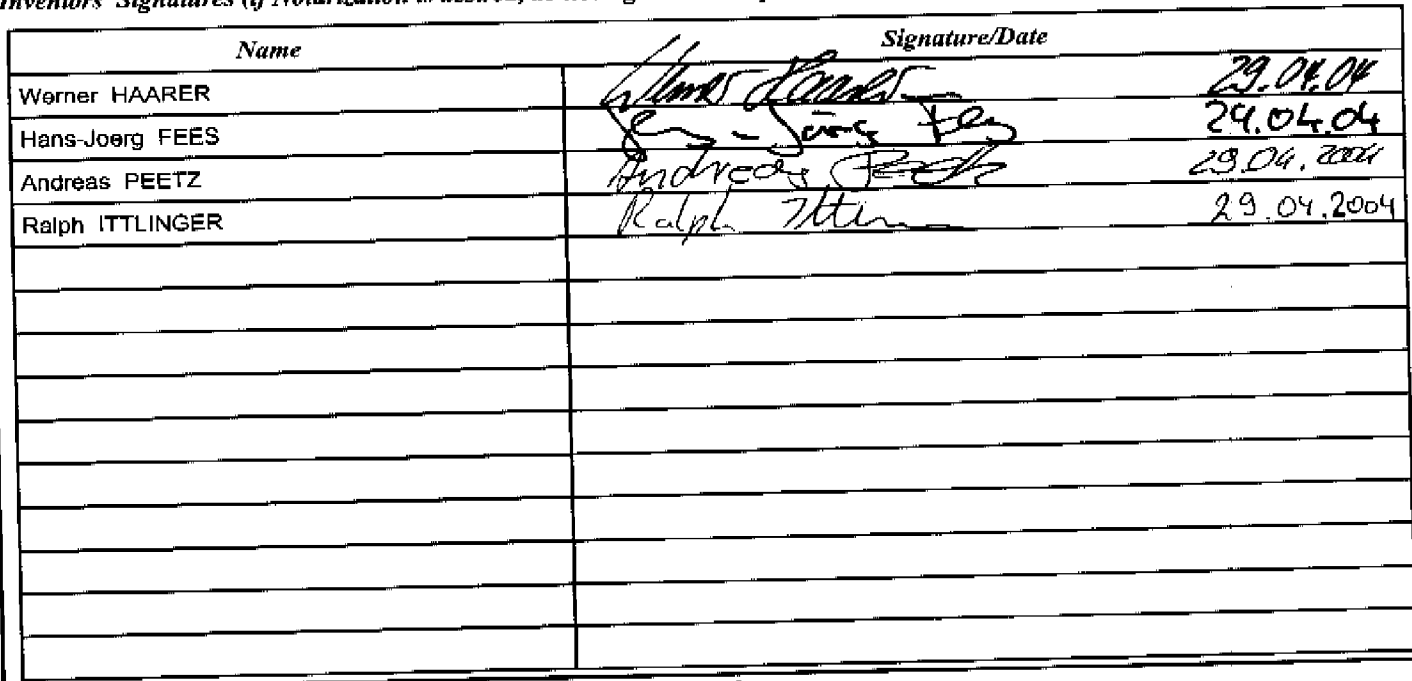 Inventors' Signatures (if Notarization is desired,
Name Signature/Date
Werner HAARER Werner Haarer 29.04.04
Hans-Joerg FEES Hans-Jörg Fees 29.04.04
Andreas PEETZ Andreas Peetz 29.04.2004
Ralph ITTLINGER Ralph Ittlinger 29.04.2004